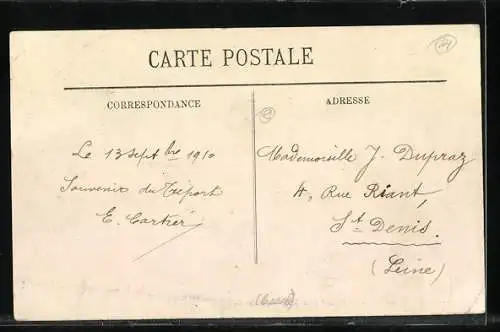 CARTE POSTALE
CORRESPONDANCE
ADRESSE
Le 13 Septbre 1910
Souvenir du Tréport
E. Cartier
Mademoiselle J. Dupraz
4, Rue Riant,
St Denis.
(Seine)